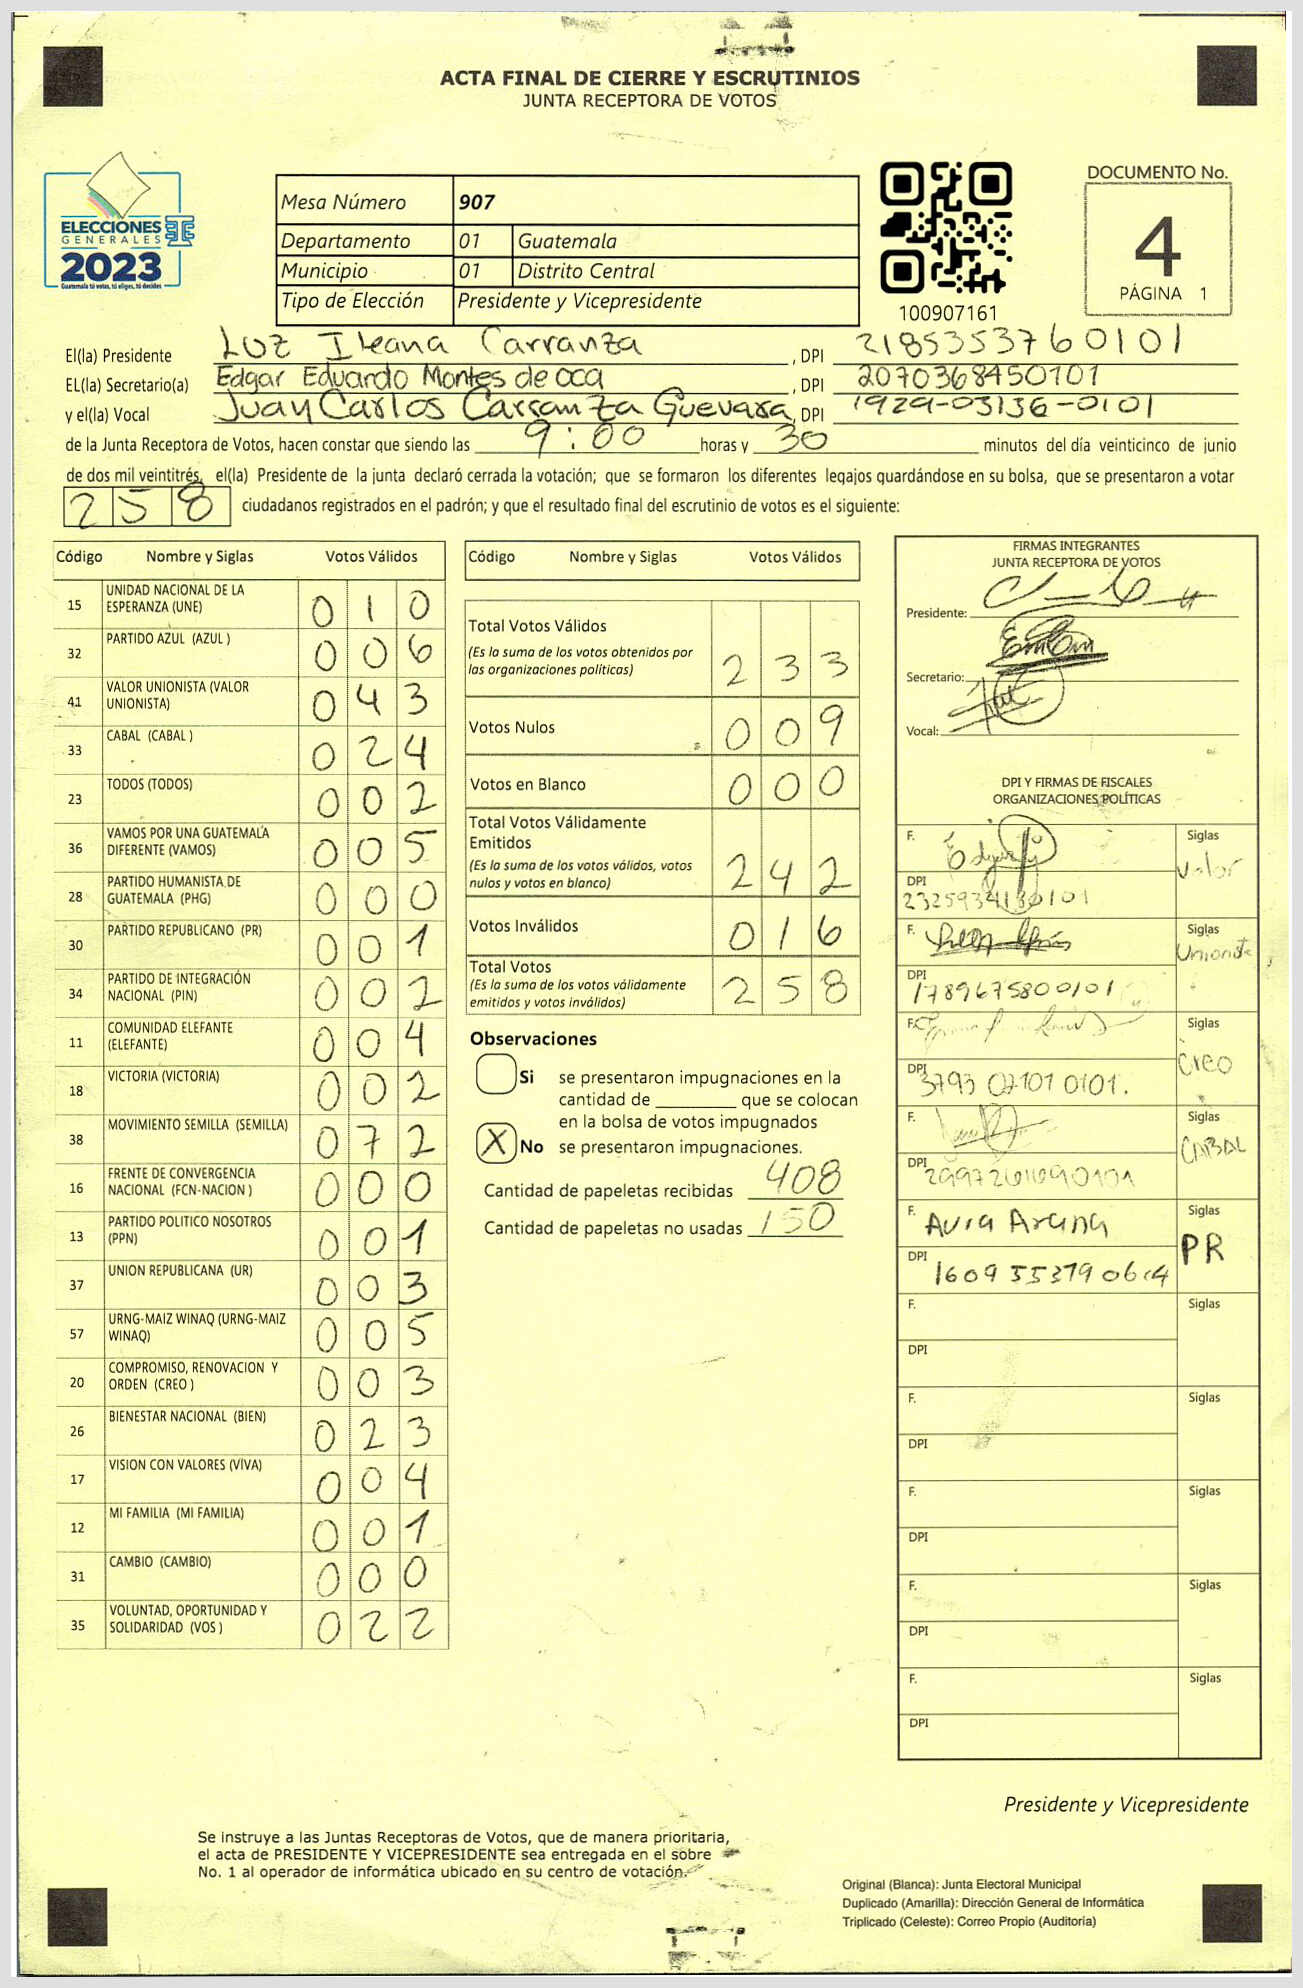 ACTA FINAL DE CIERRE Y ESCRUTINIOS
JUNTA RECEPTORA DE VOTOS
ELECCIONES
GENERALES
2023
Guatemala tú votas, tú eliges, tú decides
Mesa Número 907
Departamento 01 Guatemala
Municipio 01 Distrito Central
Tipo de Elección Presidente y Vicepresidente
100907161
DOCUMENTO No.
4
PÁGINA 1
El(la) Presidente Luz Ileana Carranza , DPI 2185353760101
EL(la) Secretario(a) Edgar Eduardo Montes de oca , DPI 2070368450101
y el(la) Vocal Juan Carlos Carranza Guevara , DPI 1929-03136-0101
de la Junta Receptora de Votos, hacen constar que siendo las 9:00 horas y 30 minutos del día veinticinco de junio
de dos mil veintitrés, el(la) Presidente de la junta declaró cerrada la votación; que se formaron los diferentes legajos guardándose en su bolsa, que se presentaron a votar
258 ciudadanos registrados en el padrón; y que el resultado final del escrutinio de votos es el siguiente:
Código Nombre y Siglas Votos Válidos
15 UNIDAD NACIONAL DE LA ESPERANZA (UNE) 010
32 PARTIDO AZUL (AZUL ) 006
41 VALOR UNIONISTA (VALOR UNIONISTA) 043
33 CABAL (CABAL ) 024
23 TODOS (TODOS) 002
36 VAMOS POR UNA GUATEMALA DIFERENTE (VAMOS) 005
28 PARTIDO HUMANISTA DE GUATEMALA (PHG) 000
30 PARTIDO REPUBLICANO (PR) 001
34 PARTIDO DE INTEGRACIÓN NACIONAL (PIN) 002
11 COMUNIDAD ELEFANTE (ELEFANTE) 004
18 VICTORIA (VICTORIA) 002
38 MOVIMIENTO SEMILLA (SEMILLA) 072
16 FRENTE DE CONVERGENCIA NACIONAL (FCN-NACION ) 000
13 PARTIDO POLITICO NOSOTROS (PPN) 001
37 UNION REPUBLICANA (UR) 003
57 URNG-MAIZ WINAQ (URNG-MAIZ WINAQ) 005
20 COMPROMISO, RENOVACION Y ORDEN (CREO ) 003
26 BIENESTAR NACIONAL (BIEN) 023
17 VISION CON VALORES (VIVA) 004
12 MI FAMILIA (MI FAMILIA) 001
31 CAMBIO (CAMBIO) 000
35 VOLUNTAD, OPORTUNIDAD Y SOLIDARIDAD (VOS ) 022
Código Nombre y Siglas Votos Válidos
Total Votos Válidos 233
(Es la suma de los votos obtenidos por
las organizaciones políticas)
Votos Nulos 009
Votos en Blanco 000
Total Votos Válidamente
Emitidos 242
(Es la suma de los votos válidos, votos
nulos y votos en blanco)
Votos Inválidos 016
Total Votos 258
(Es la suma de los votos válidamente
emitidos y votos inválidos)
Observaciones
Si se presentaron impugnaciones en la
cantidad de ________ que se colocan
en la bolsa de votos impugnados
X No se presentaron impugnaciones.
Cantidad de papeletas recibidas 408
Cantidad de papeletas no usadas 150
FIRMAS INTEGRANTES
JUNTA RECEPTORA DE VOTOS
Presidente:
Secretario:
Vocal:
DPI Y FIRMAS DE FISCALES
ORGANIZACIONES POLÍTICAS
F. Siglas
Valor
DPI
F. Siglas
Unionista
DPI
1789675800101
F. Siglas
Creo
DPI
3793 07101 0101.
F. Siglas
CABAL
DPI
F. Avia Arana Siglas
PR
DPI
F. Siglas
DPI
F. Siglas
DPI
F. Siglas
DPI
F. Siglas
DPI
F. Siglas
DPI
Presidente y Vicepresidente
Se instruye a las Juntas Receptoras de Votos, que de manera prioritaria,
el acta de PRESIDENTE Y VICEPRESIDENTE sea entregada en el sobre
No. 1 al operador de informática ubicado en su centro de votación.
Original (Blanca): Junta Electoral Municipal
Duplicado (Amarilla): Dirección General de Informática
Triplicado (Celeste): Correo Propio (Auditoría)